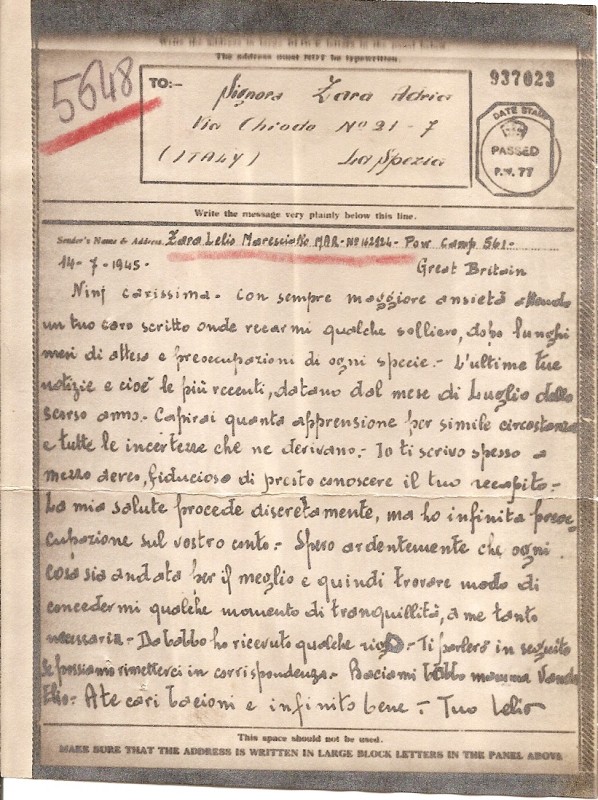 Write the address in large BLOCK letters in the panel below.
The address must NOT be typewritten.
5648
TO:-
Signora Zara Adria
Via Chiodo Nº 21 - 7
(ITALY) La Spezia
937023
DATE STAMP
PASSED
P.W. 77
Write the message very plainly below this line.
Sender's Name & Address Zara Lelio Maresciallo MAR- Nº 162824- Pow Camp 561-
14-7-1945- Great Britain
Ninj carissima- Con sempre maggiore ansietà attendo
un tuo caro scritto onde recarmi qualche sollievo, dopo lunghi
mesi di attesa e preoccupazioni di ogni specie.- L'ultime tue
notizie e cioè le più recenti, datano dal mese di Luglio dello
scorso anno.- Capirai quanta apprensione per simile circostanza
e tutte le incertezze che ne derivano.- Io ti scrivo spesso a
mezzo aereo, fiducioso di presto conoscere il tuo recapito.-
La mia salute procede discretamente, ma ho infinita preoc
cupazione sul vostro conto.- Spero ardentemente che ogni
cosa sia andata per il meglio e quindi trovare modo di
concedermi qualche momento di tranquillità, a me tanto
necessaria.- Da babbo ho ricevuto qualche rigo.- Ti parlerò in seguito
se possiamo rimetterci in corrispondenza.- Baciami babbo mamma
Elio- A te cari bacioni e infinito bene.- Tuo Lelio
This space should not be used.
MAKE SURE THAT THE ADDRESS IS WRITTEN IN LARGE BLOCK LETTERS IN THE PANEL ABOVE